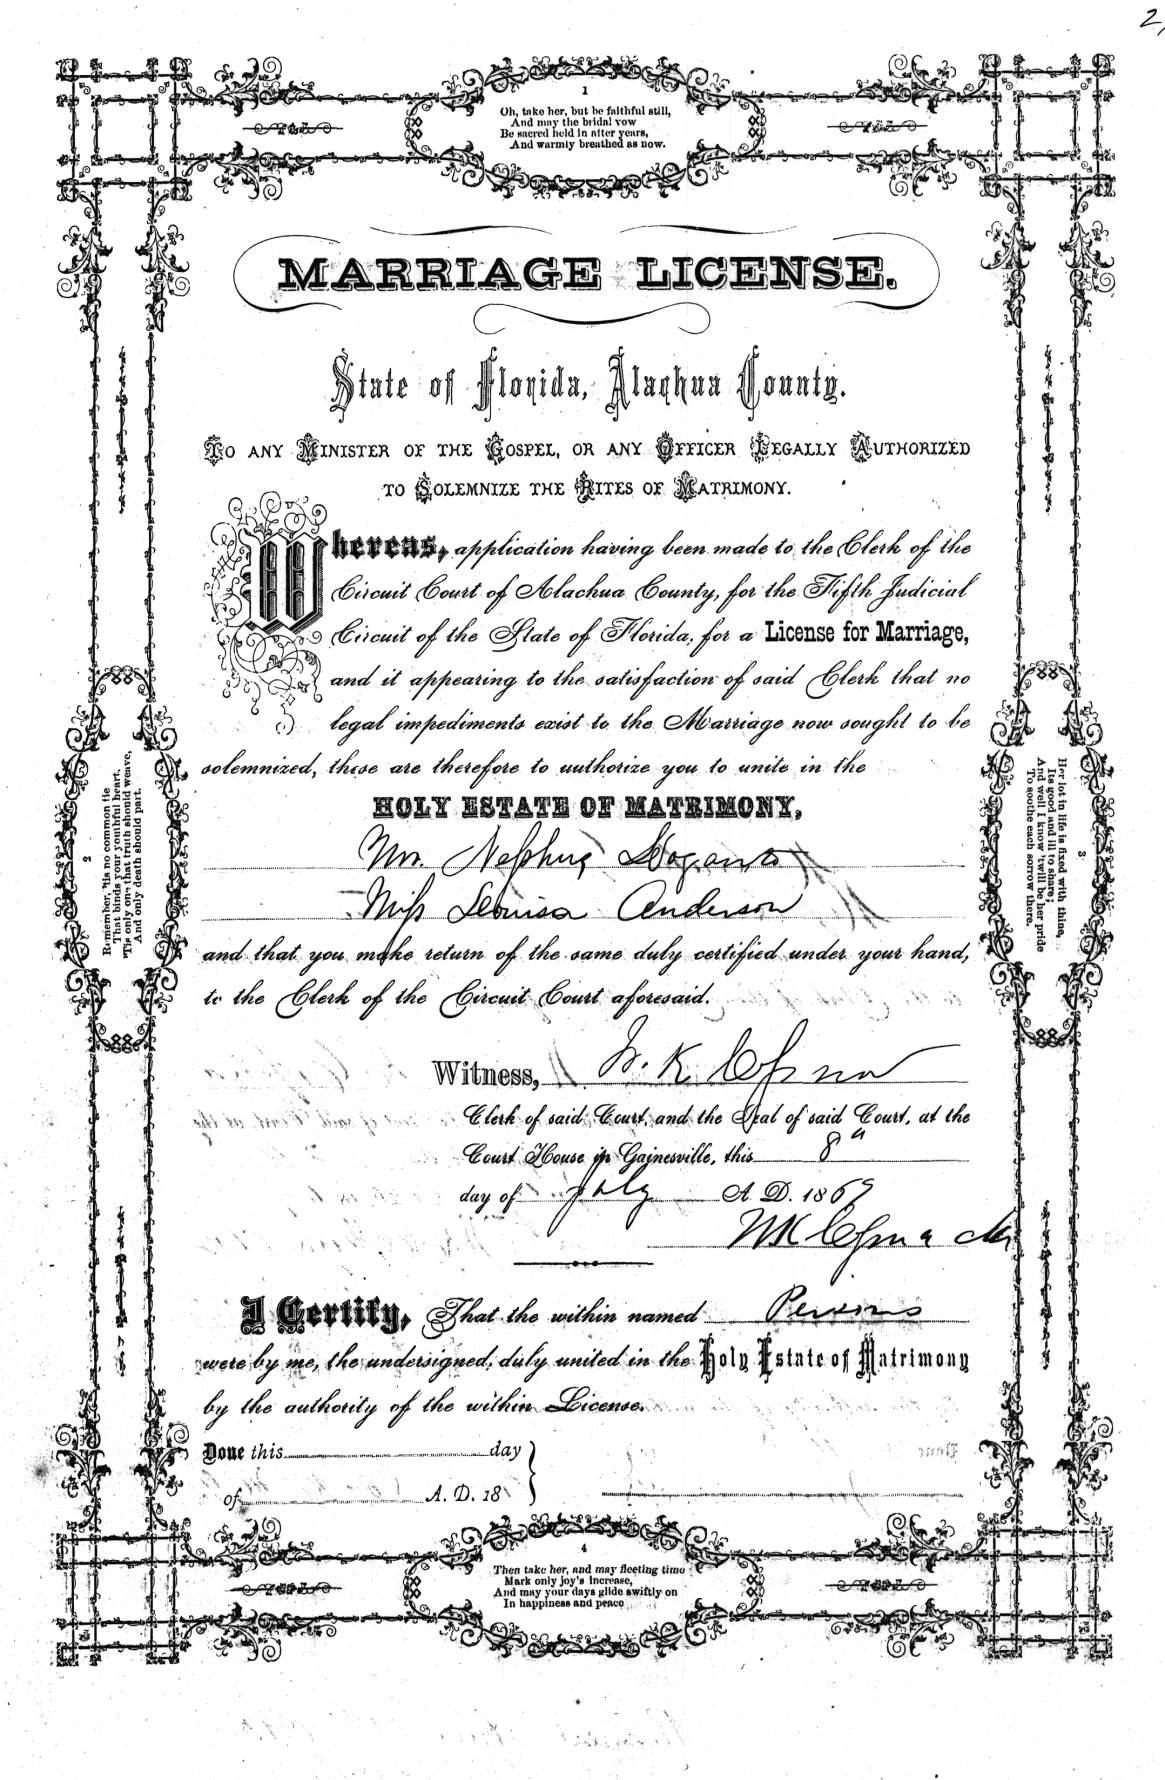 2,
1
Oh, take her, but be faithful still,
And may the bridal vow
Be sacred held in after years,
And warmly breathed as now.
MARRIAGE LICENSE.
State of Florida, Alachua County.
TO ANY MINISTER OF THE GOSPEL, OR ANY OFFICER LEGALLY AUTHORIZED
TO SOLEMNIZE THE RITES OF MATRIMONY.
Whereas, application having been made to the Clerk of the
Circuit Court of Alachua County, for the Fifth Judicial
Circuit of the State of Florida, for a License for Marriage,
and it appearing to the satisfaction of said Clerk that no
legal impediments exist to the Marriage now sought to be
solemnized, these are therefore to authorize you to unite in the
HOLY ESTATE OF MATRIMONY,
Mr.
Miss Louisa Anderson
and that you make return of the same duly certified under your hand,
to the Clerk of the Circuit Court aforesaid.
Witness, K
Clerk of said Court, and the Seal of said Court, at the
Court House in Gainesville, this 8th
day of July A. D. 1869
I Certify, That the within named Persons
were by me, the undersigned, duly united in the Holy Estate of Matrimony
by the authority of the within License.
Done this day
of A. D. 18
2
Remember, 'tis no common tie
That binds your youthful heart,
'Tis only one that truth should weave,
And only death should part.
3
Her lot in life is fixed with thine,
Its good and ill to share;
And well I know 'twill be her pride
To soothe each sorrow there.
4
Then take her, and may fleeting time
Mark only joy's increase,
And may your days glide swiftly on
In happiness and peace